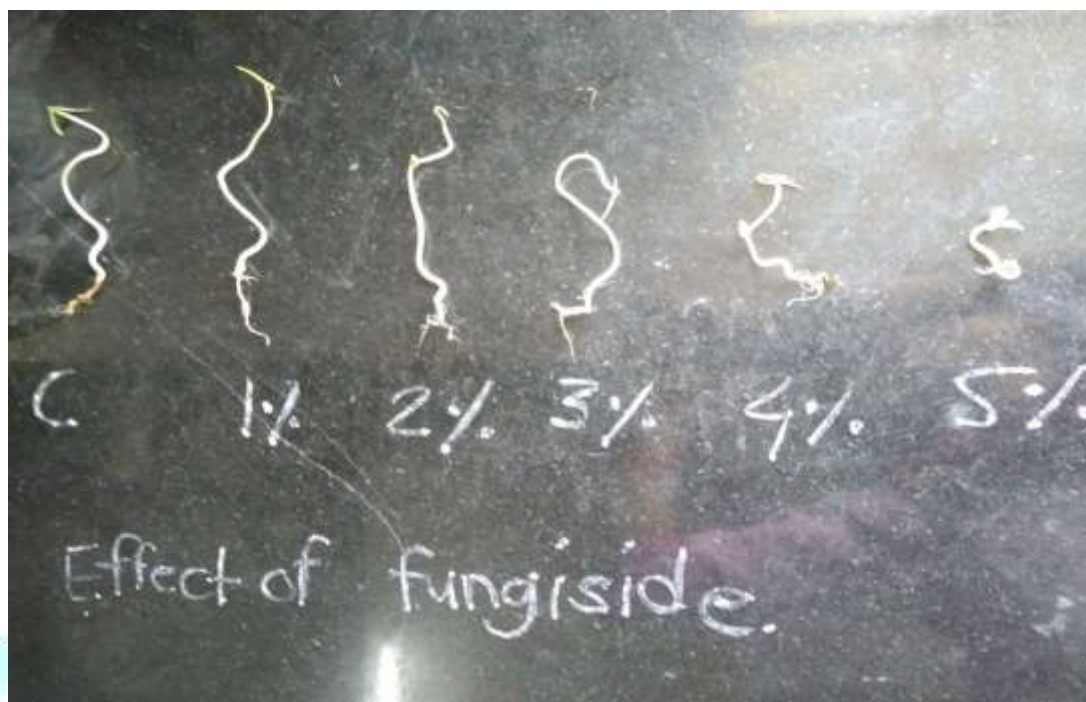 C. 1% 2% 3% 4% 5%
Effect of fungiside.